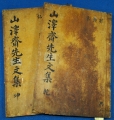 山澤齋先生文集 乾
山澤齋先生文集 坤